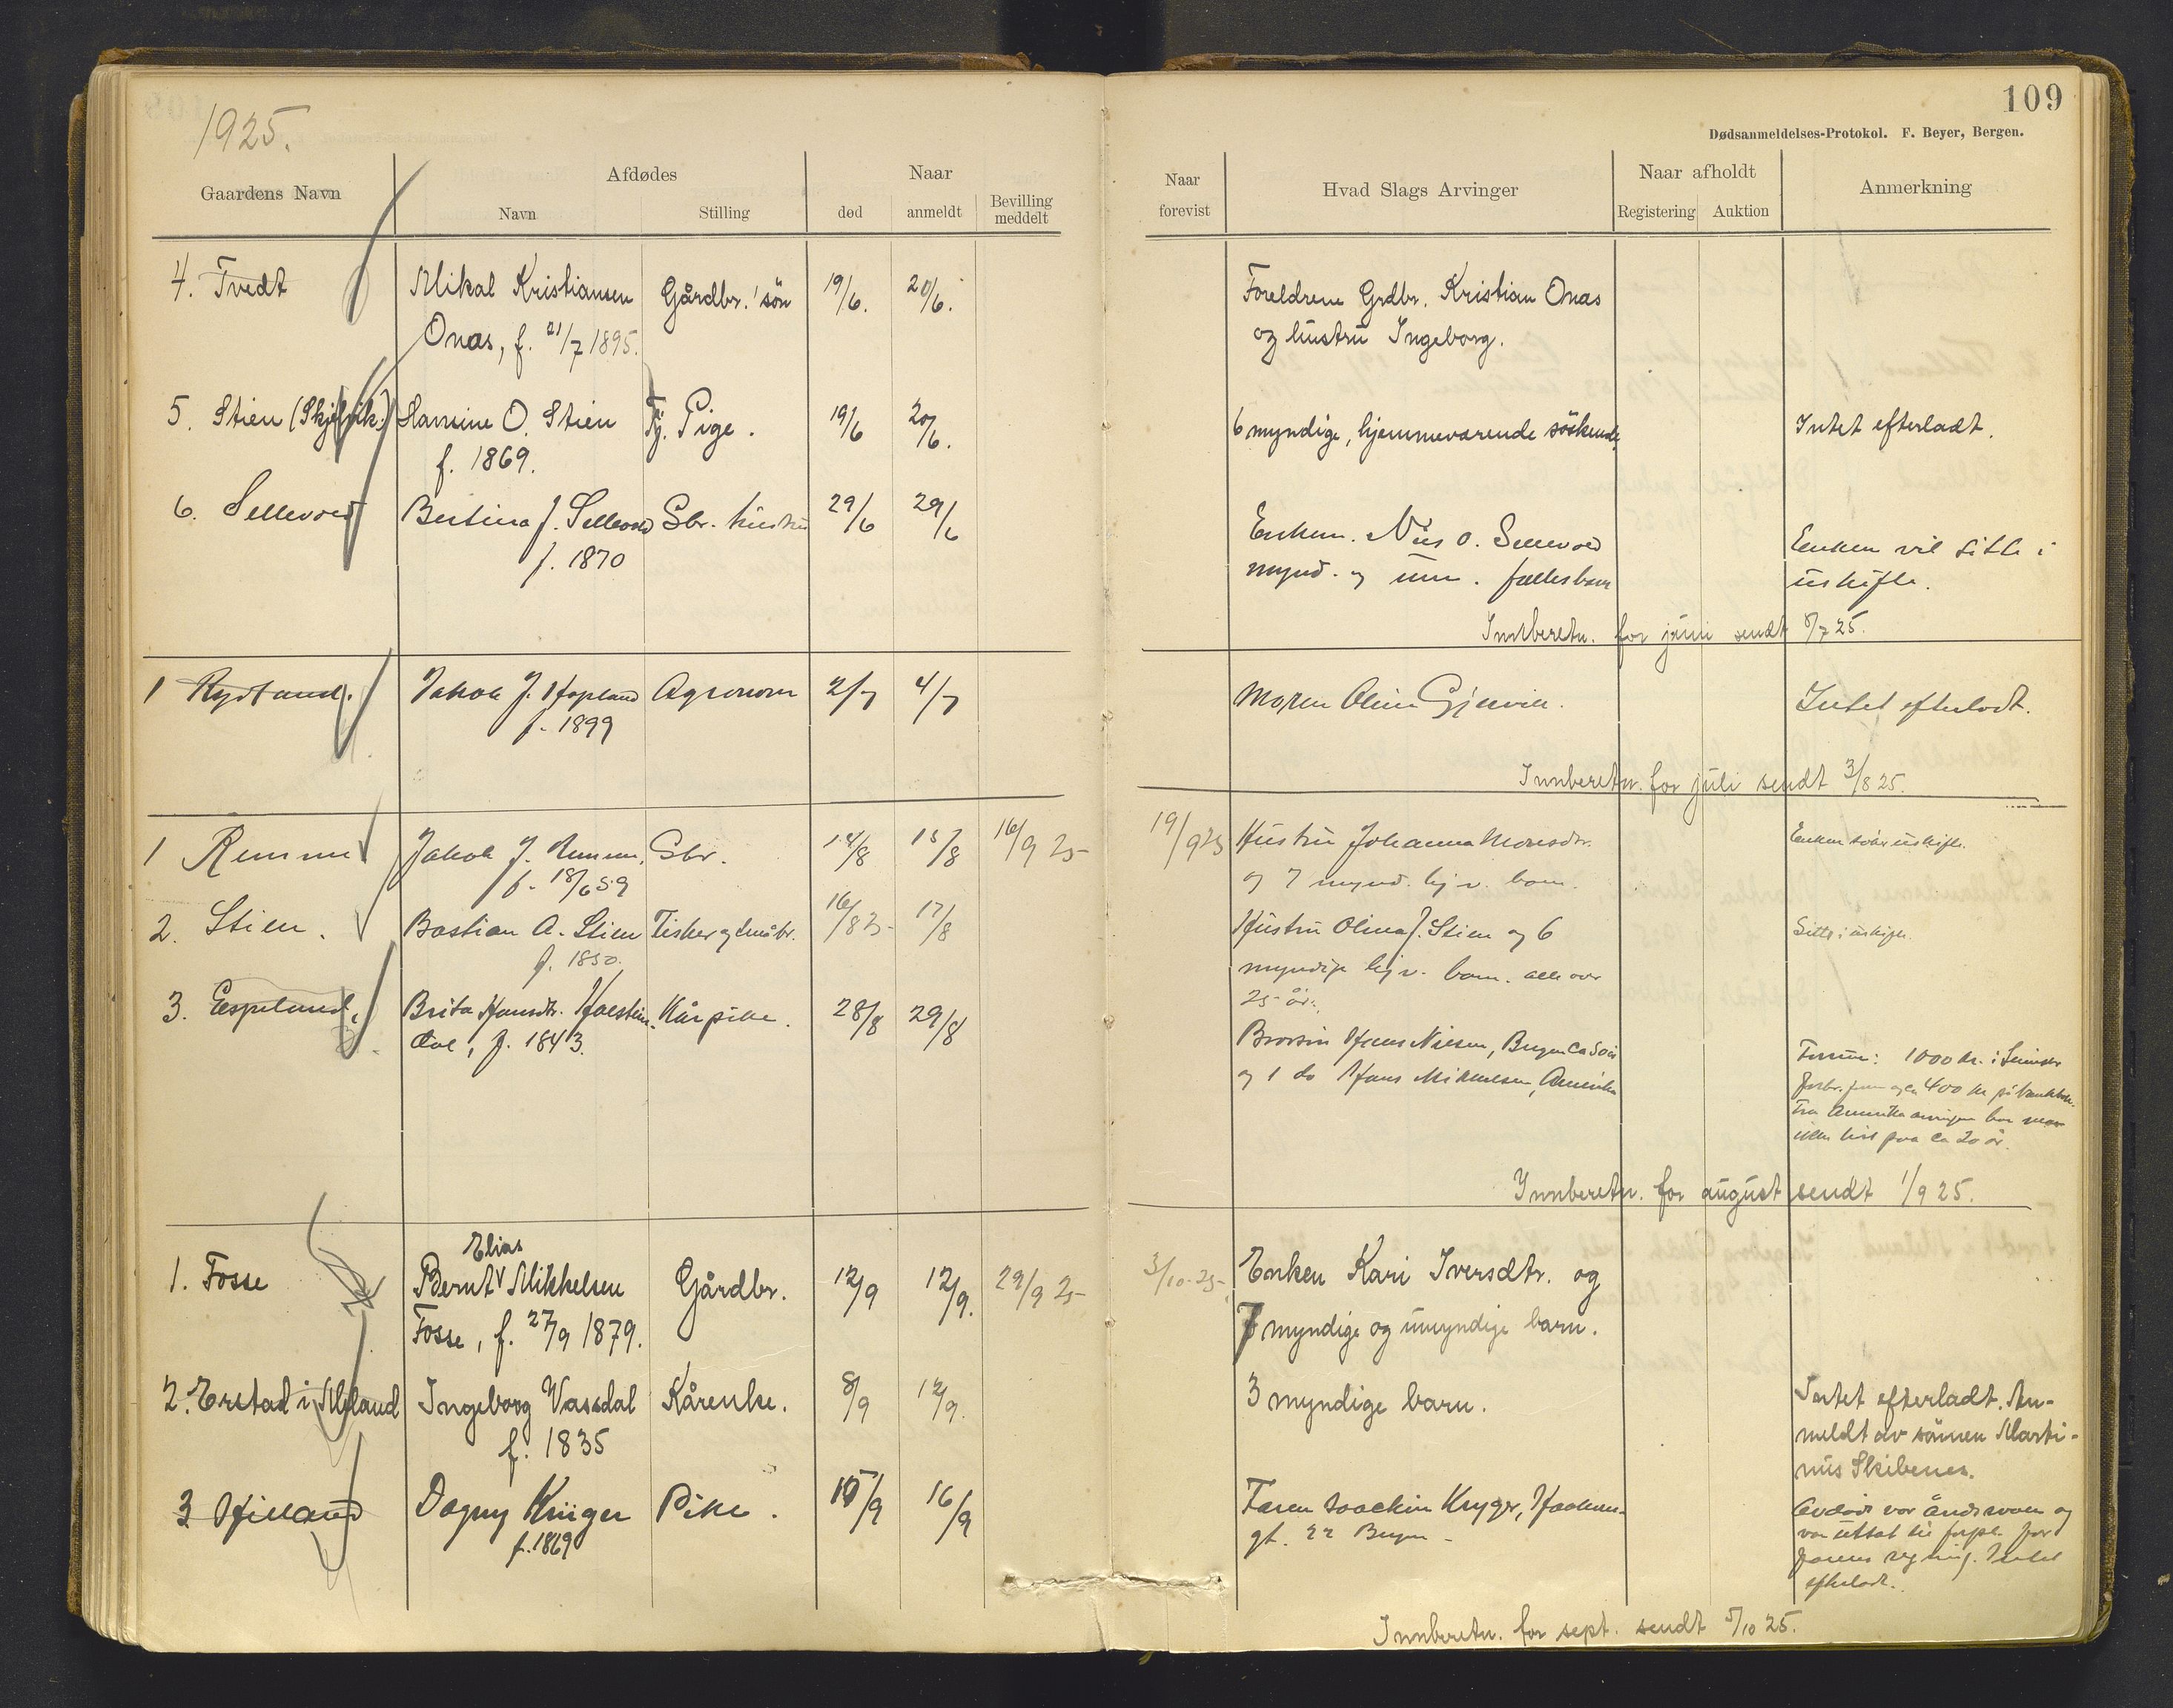 1925.
109
Dødsanmeldelses-Protokol. F. Beyer, Bergen.
Gaardens Navn
Afdødes
Navn
Stilling
Naar
død
anmeldt
Bevilling meddelt
Naar forevist
Hvad Slags Arvinger
Naar afholdt
Registering
Auktion
Anmerkning
4. Tvedt Mikal Kristiansen Gårdbr.'sön 19/6. 20/6. Foreldrene Grdbr. Kristian Onas
Onas, f. 21/7 1895. og hustru Ingeborg.
5. Stien (Skjelvik) Hansine O. Stien Tj. Pige. 19/6 20/6. 6 myndige, hjemmeværende söskende. Intet efterladt.
f. 1869.
6. Sellevold Bertina J. Sellevold Sbr. hustru 29/6 29/6 Enkem. Nils O. Sellevold Enkem vil sitte i
f. 1870 mynd. og um. fællesbarn uskifte.
Innberetn. for juni sendt 8/7 25.
1 Rydland. Jakob J. Hopland Agronom 2/7 4/7 Moren Oline Gjervik. Intet efterladt.
f. 1899
Innberetn. for juli sendt 3/8 25.
1 Remme Jakob J. Remme, Sbr. 14/8 15/8 16/9 25 19/9 25 Hustru Johanna Monsdtr. Enken söker uskifte.
f. 18/6 59 og 7 mynd. hj. v. barn.
2. Stien. Bastian A. Stien Fisker og småbr. 16/8 25 17/8 Hustru Olina J. Stien og 6 Sitte i uskifte.
f. 1850. myndige hj v. barn. alle over
25 år.
3. Espeland, Brita Hansdtr. Kårpike. 28/8 29/8 Brorsön Hans Nilsen, Bergen
f. 1843. og 1 do Hans Mikkelsen, Amerika
1000 kr. i
400 kr på bankbok.
Fra Amerika arvingen har man
ikke hört paa ca 20 år.
Innberetn. for august sendt 1/9 25.
1. Fosse Bernt Elias Mikkelsen Gårdbr. 12/9 12/9. 29/9 25 3/10-25- Enken Kari Iversdtr. og
Fosse, f. 27/9 1879. 7 myndige og umyndige barn.
2. Erstad i Mjeland Ingeborg Vassdal Kårenke. 8/9 12/9. 3 myndige barn. Intet efterladt. An-
f. 1835 meldt av sönnen Marti-
nus Skibenes.
3 Hilland Dagny Krüger Pike. 15/9 16/9 Faren Joachim Kryger,
f. 1869 gt. 22 Bergen Avdöde var åndssvak og
var utsat til forpl. for
farens regning. Intet
efterladt.
Innberetn. for sept. sendt 5/10 25.